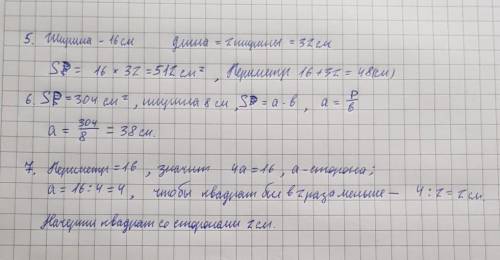 5. Ширина - 16см Длина = 2 ширины = 32см
S = 16 × 32 = 512 см², Периметр 16 + 32 = 48(см)
6. S = 304 см², ширина 8 см, S = а · в, а = P/в
а = 304/8 = 38 см.
7. Периметр = 16, значит 4а = 16, а - сторона;
а = 16 : 4 = 4, чтобы квадрат был в 2 раза меньше — 4 : 2 = 2 см.
Начерти квадрат со сторонами 2 см.